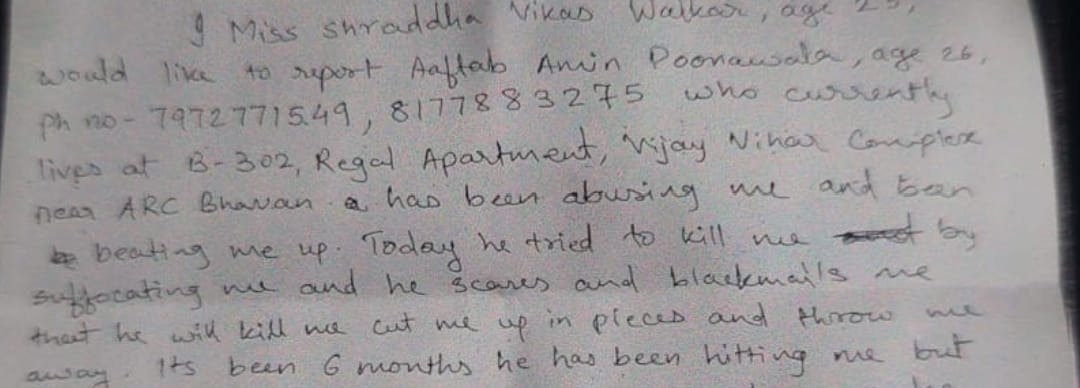 I Miss Shraddha Vikas Walkar, age 25,
would like to report Aaftab Amin Poonawala, age 26,
ph no - 7972771549, 8177883275 who currently
lives at B-302, Regal Apartment, Vijay Vihar Complex
near ARC Bhavan has been abusing me and been
beating me up. Today he tried to kill me by
suffocating me and he scares and blackmails me
that he will kill me cut me up in pieces and throw me
away. Its been 6 months he has been hitting me but